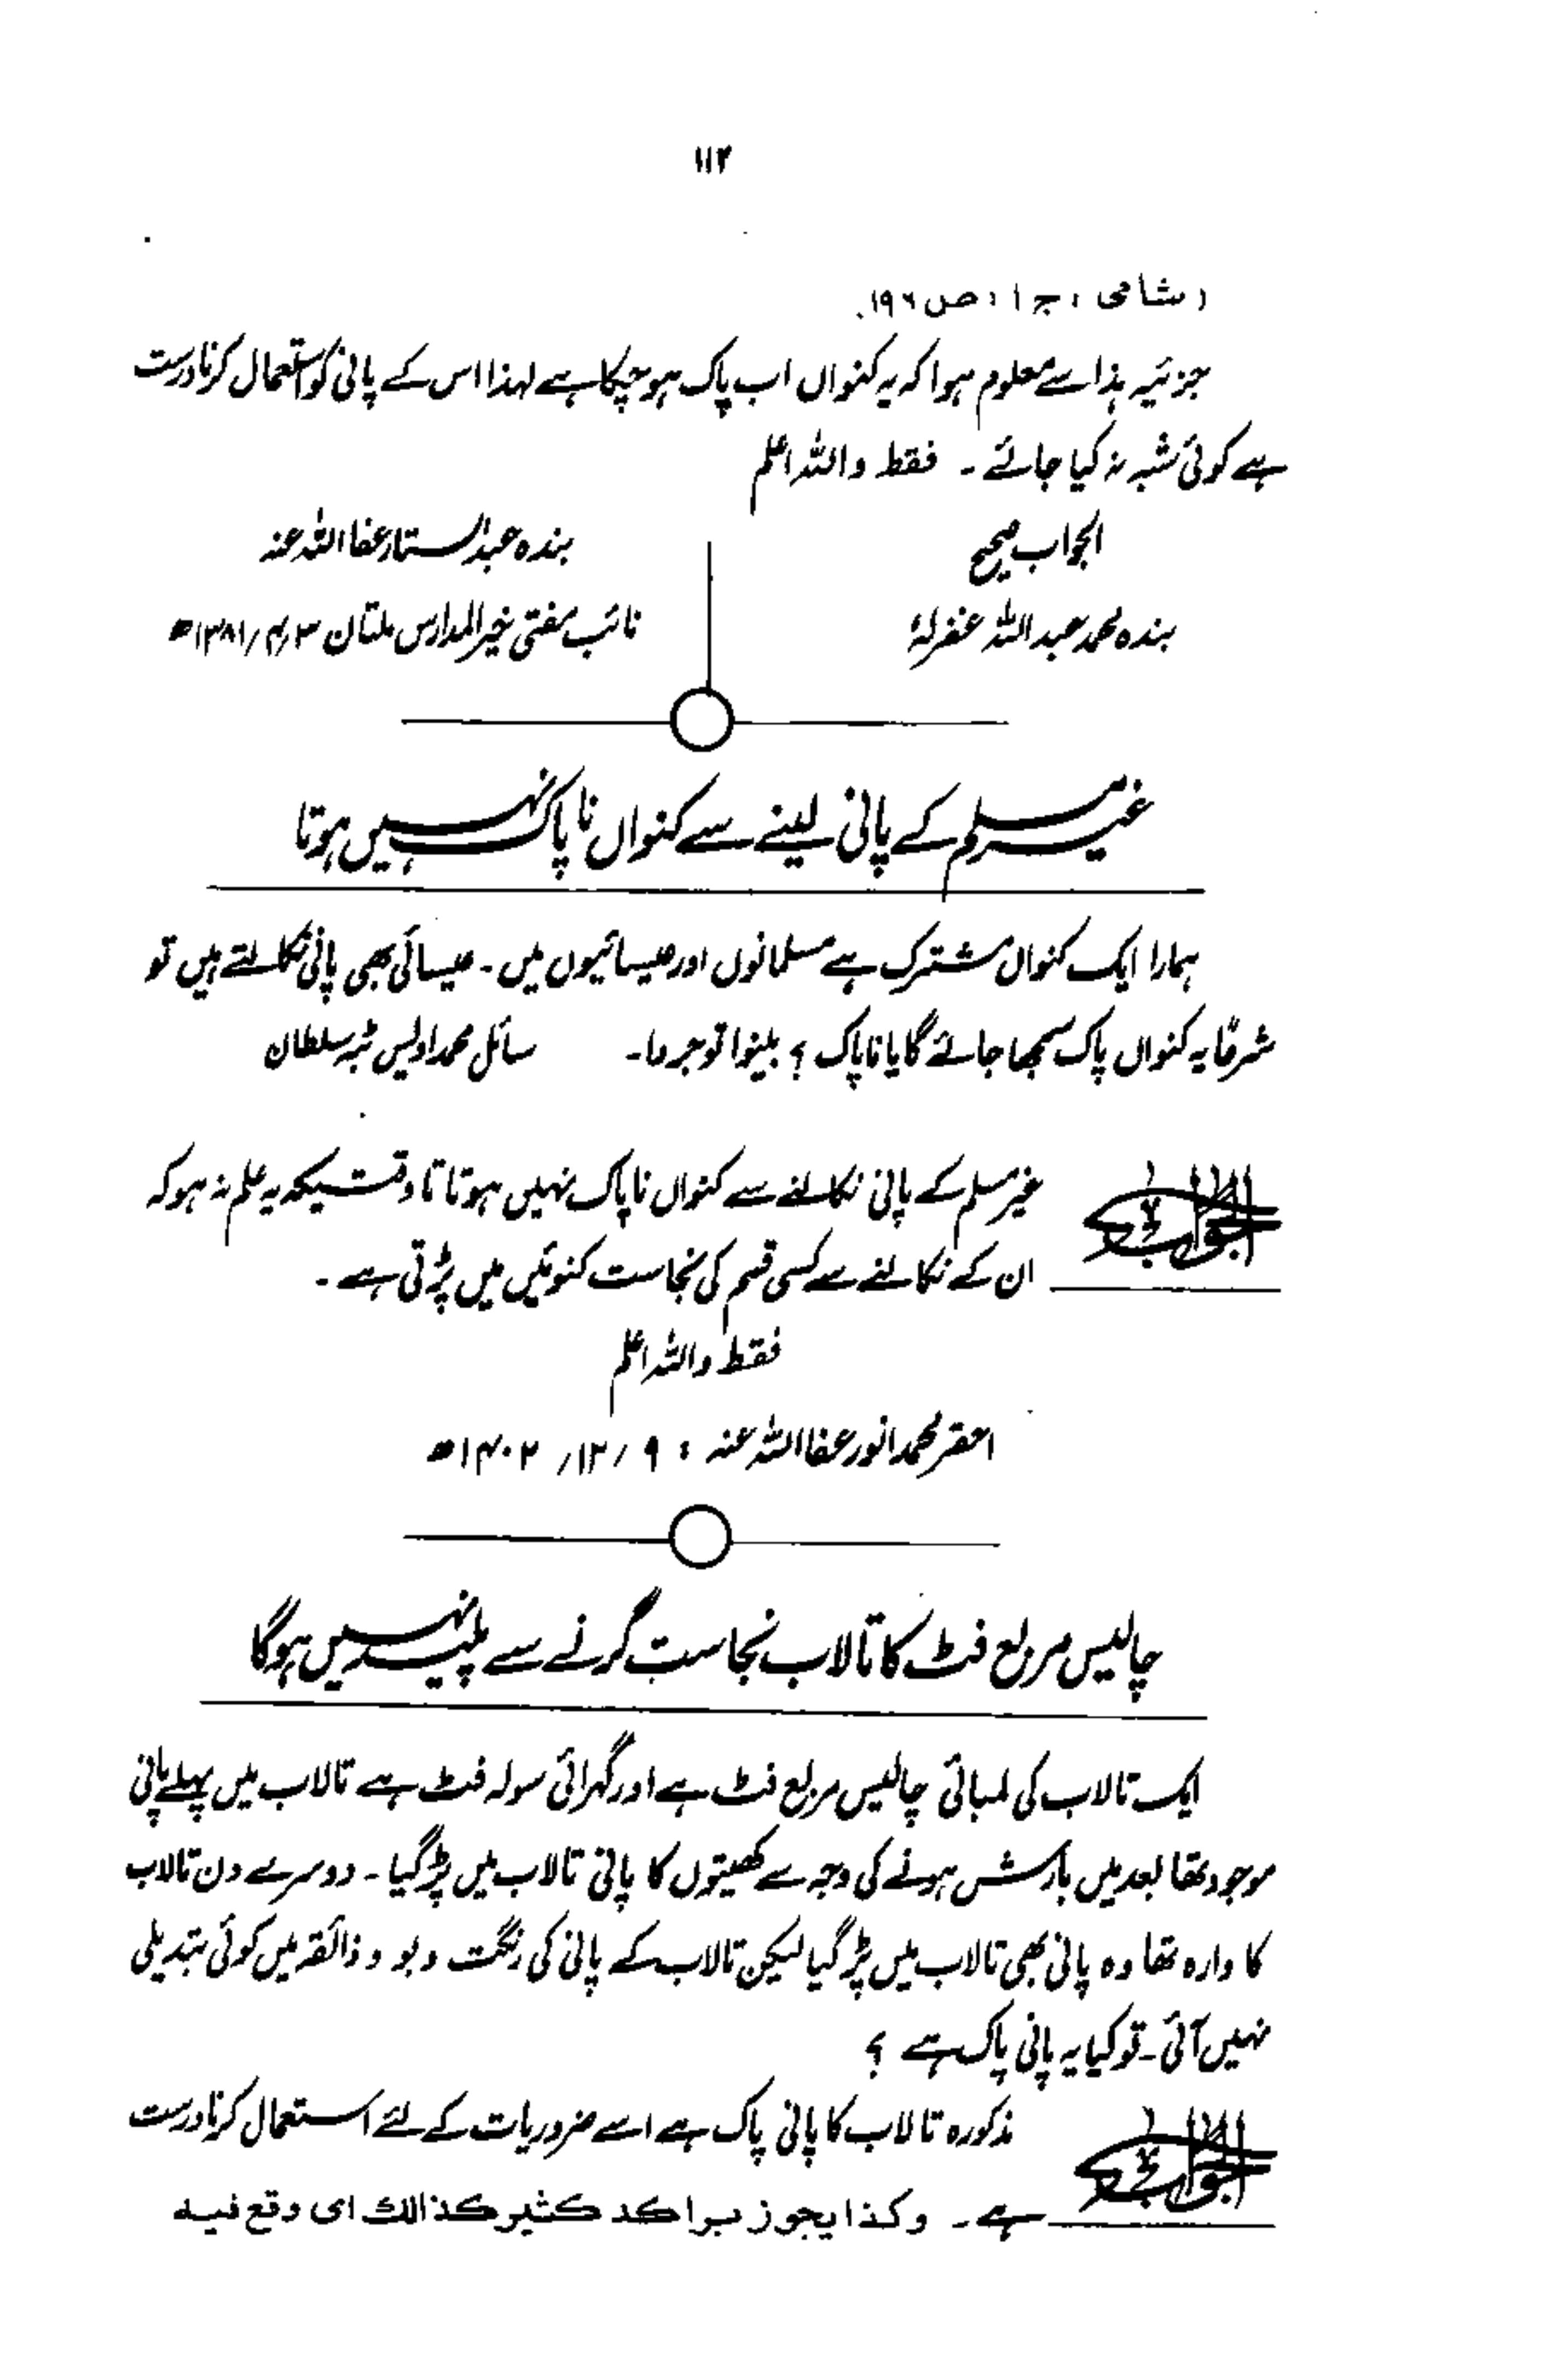 ۱۱۲
(شامی ، ج ۱ ، ص ۱۹۶)
جزئیہ ہذا سے معلوم ہوا کہ یہ کنواں اب پاک ہو چکا ہے لہذا اس کے پانی کو استعمال کرنا درست
ہے کوئی شبہ نہ کیا جائے ۔ فقط واللہ اعلم
الجواب صحیح
بندہ محمد عبد اللہ غفرلہٗ
بندہ عبدالستار عفا اللہ عنہ
نائب مفتی خیر المدارس ملتان ۳/۴/۱۳۸۱ھ
غیر مسلم کے پانی لینے سے کنواں ناپاک نہیں ہوتا
ہمارا ایک کنواں مشترک ہے مسلمانوں اور عیسائیوں میں ۔ عیسائی بھی پانی نکالتے ہیں تو
شرعًا یہ کنواں پاک سمجھا جائے گا یا ناپاک ؟ بینوا توجروا ۔ سائل محمد اویس ٹبہ سلطان
الجواب
غیر مسلم کے پانی نکالنے سے کنواں ناپاک نہیں ہوتا تا وقتیکہ یہ علم نہ ہو کہ
ان کے نکالنے سے کسی قسم کی نجاست کنوئیں میں پڑتی ہے ۔
فقط واللہ اعلم
احقر محمد انور عفا اللہ عنہ : ۹ / ۱۲ / ۱۴۰۲ھ
چالیس مربع فٹ کا تالاب نجاست گرنے سے پلید نہیں ہوگا
ایک تالاب کی لمبائی چالیس مربع فٹ ہے اور گہرائی سولہ فٹ ہے تالاب میں پہلے پانی
موجود تھا بعد میں بارش ہونے کی وجہ سے کھیتوں کا پانی تالاب میں پڑ گیا ۔ دوسرے دن تالاب
کا وارہ تھا وہ پانی بھی تالاب میں پڑ گیا لیکن تالاب کے پانی کی رنگت و بو و ذائقہ میں کوئی تبدیلی
نہیں آئی ۔ تو کیا یہ پانی پاک ہے ؟
الجواب
مذکورہ تالاب کا پانی پاک ہے اسے ضروریات کے لئے استعمال کرنا درست
ہے ۔ وکذا یجوز براکد کثیر کذالک ای وقع فیہ